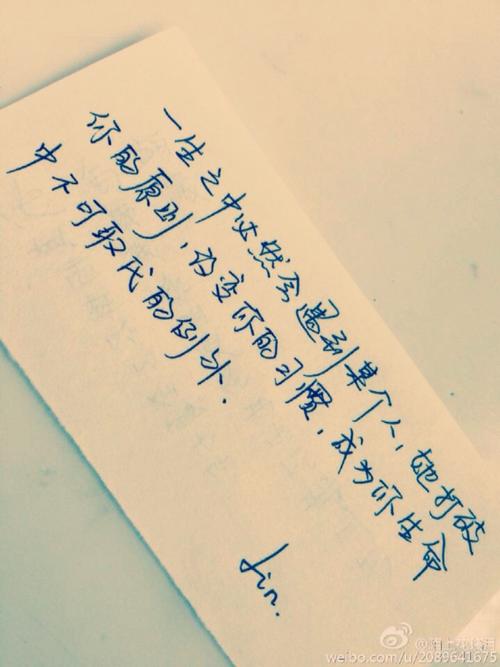 一生之中必然会遇到某个人,她打破
你的原则,改变你的习惯,成为你生命
中不可取代的例外.
Lin.
weibo.com/u/2089641675